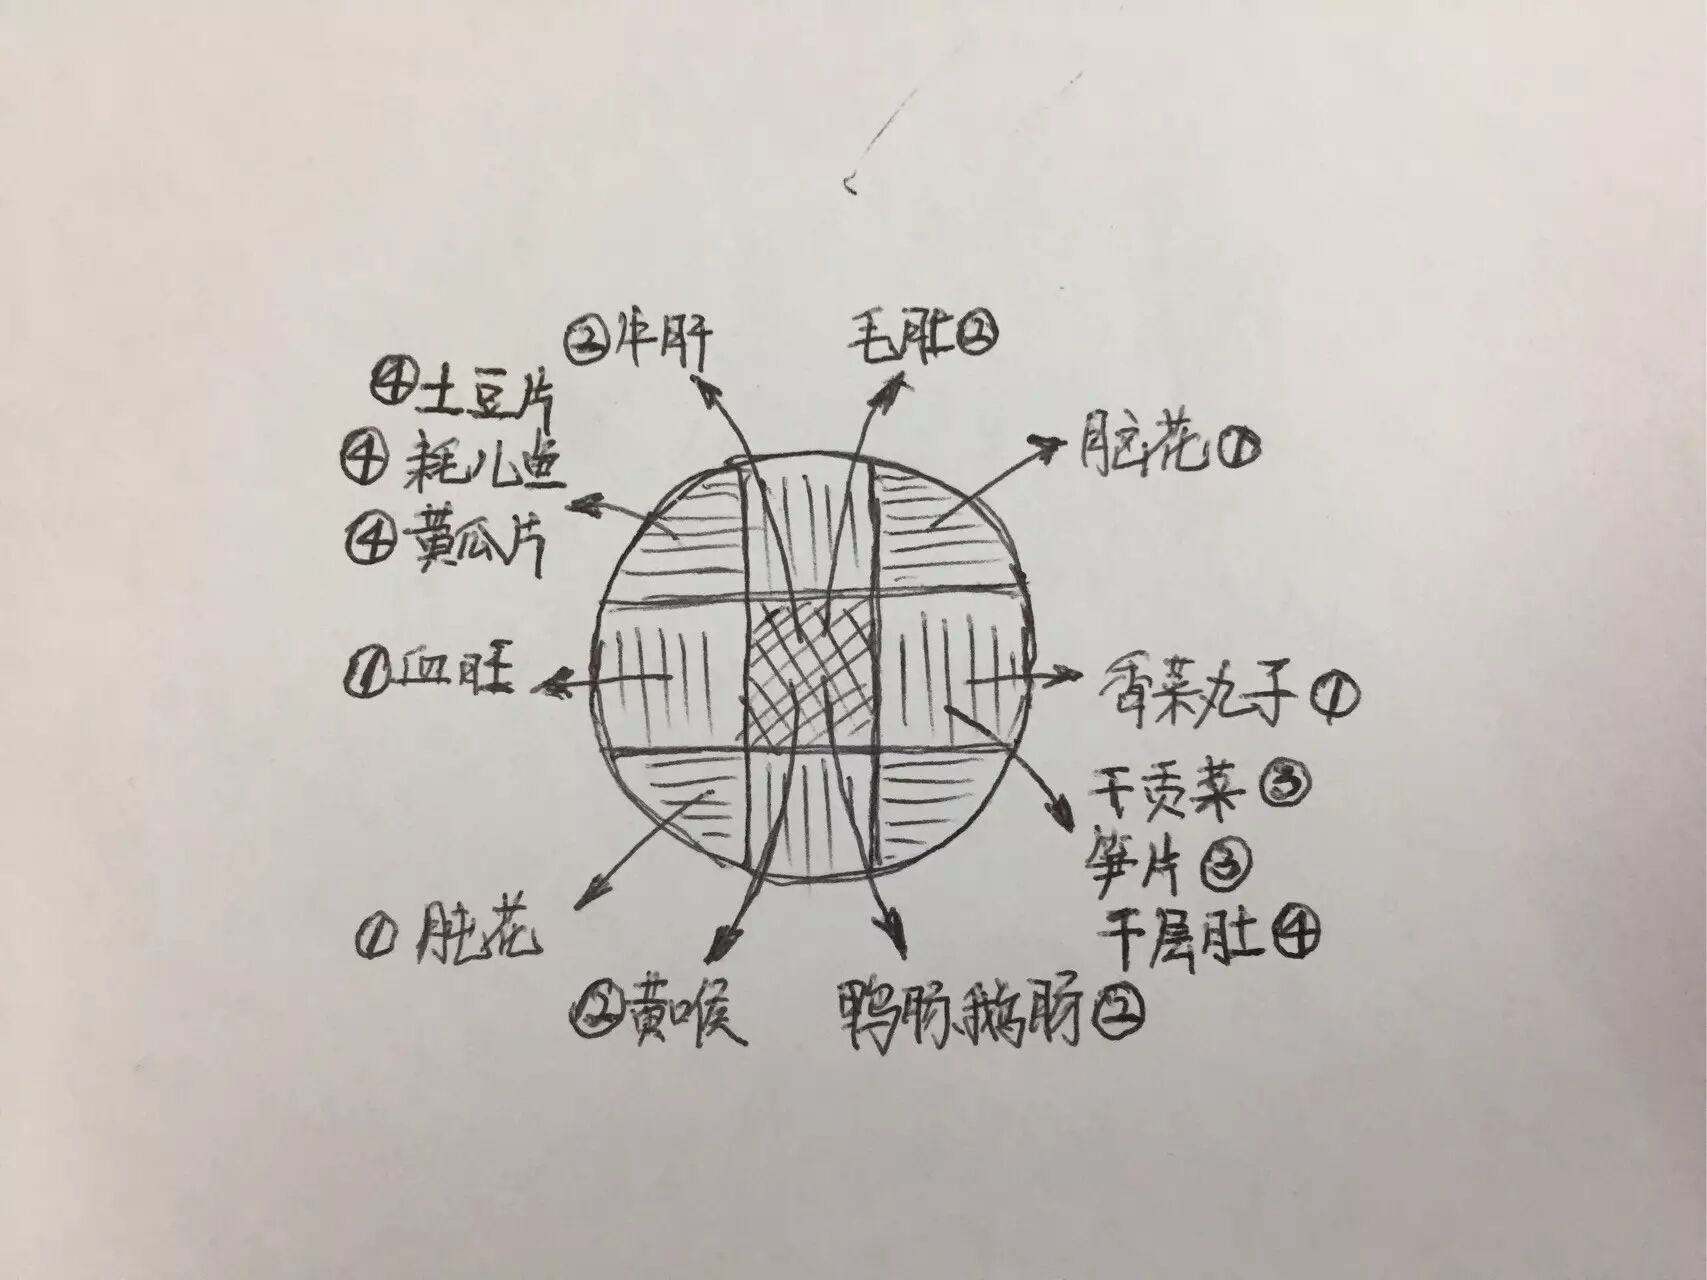 ②牛肝
毛肚②
④土豆片
④耗儿鱼
④黄瓜片
脑花①
①血旺
香菜丸子①
干贡菜③
笋片③
千层肚④
①脑花
②黄喉
鸭肠、鹅肠②